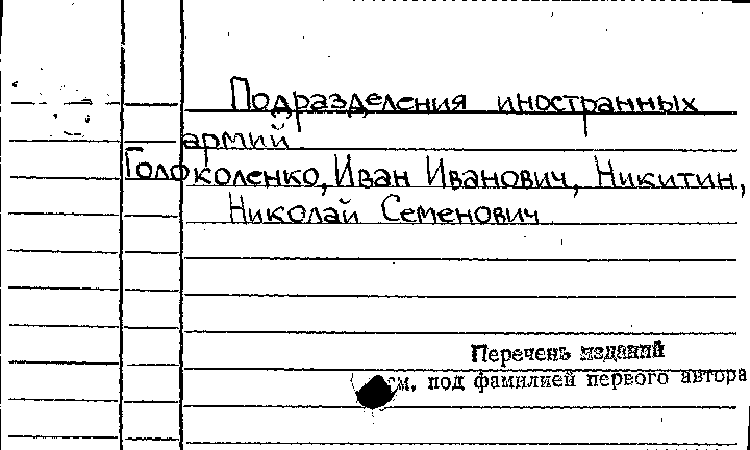 Подразделения иностранных
армий
Голоколенко, Иван Иванович, Никитин,
Николай Семенович
Перечень изданий
см. под фамилией первого автора